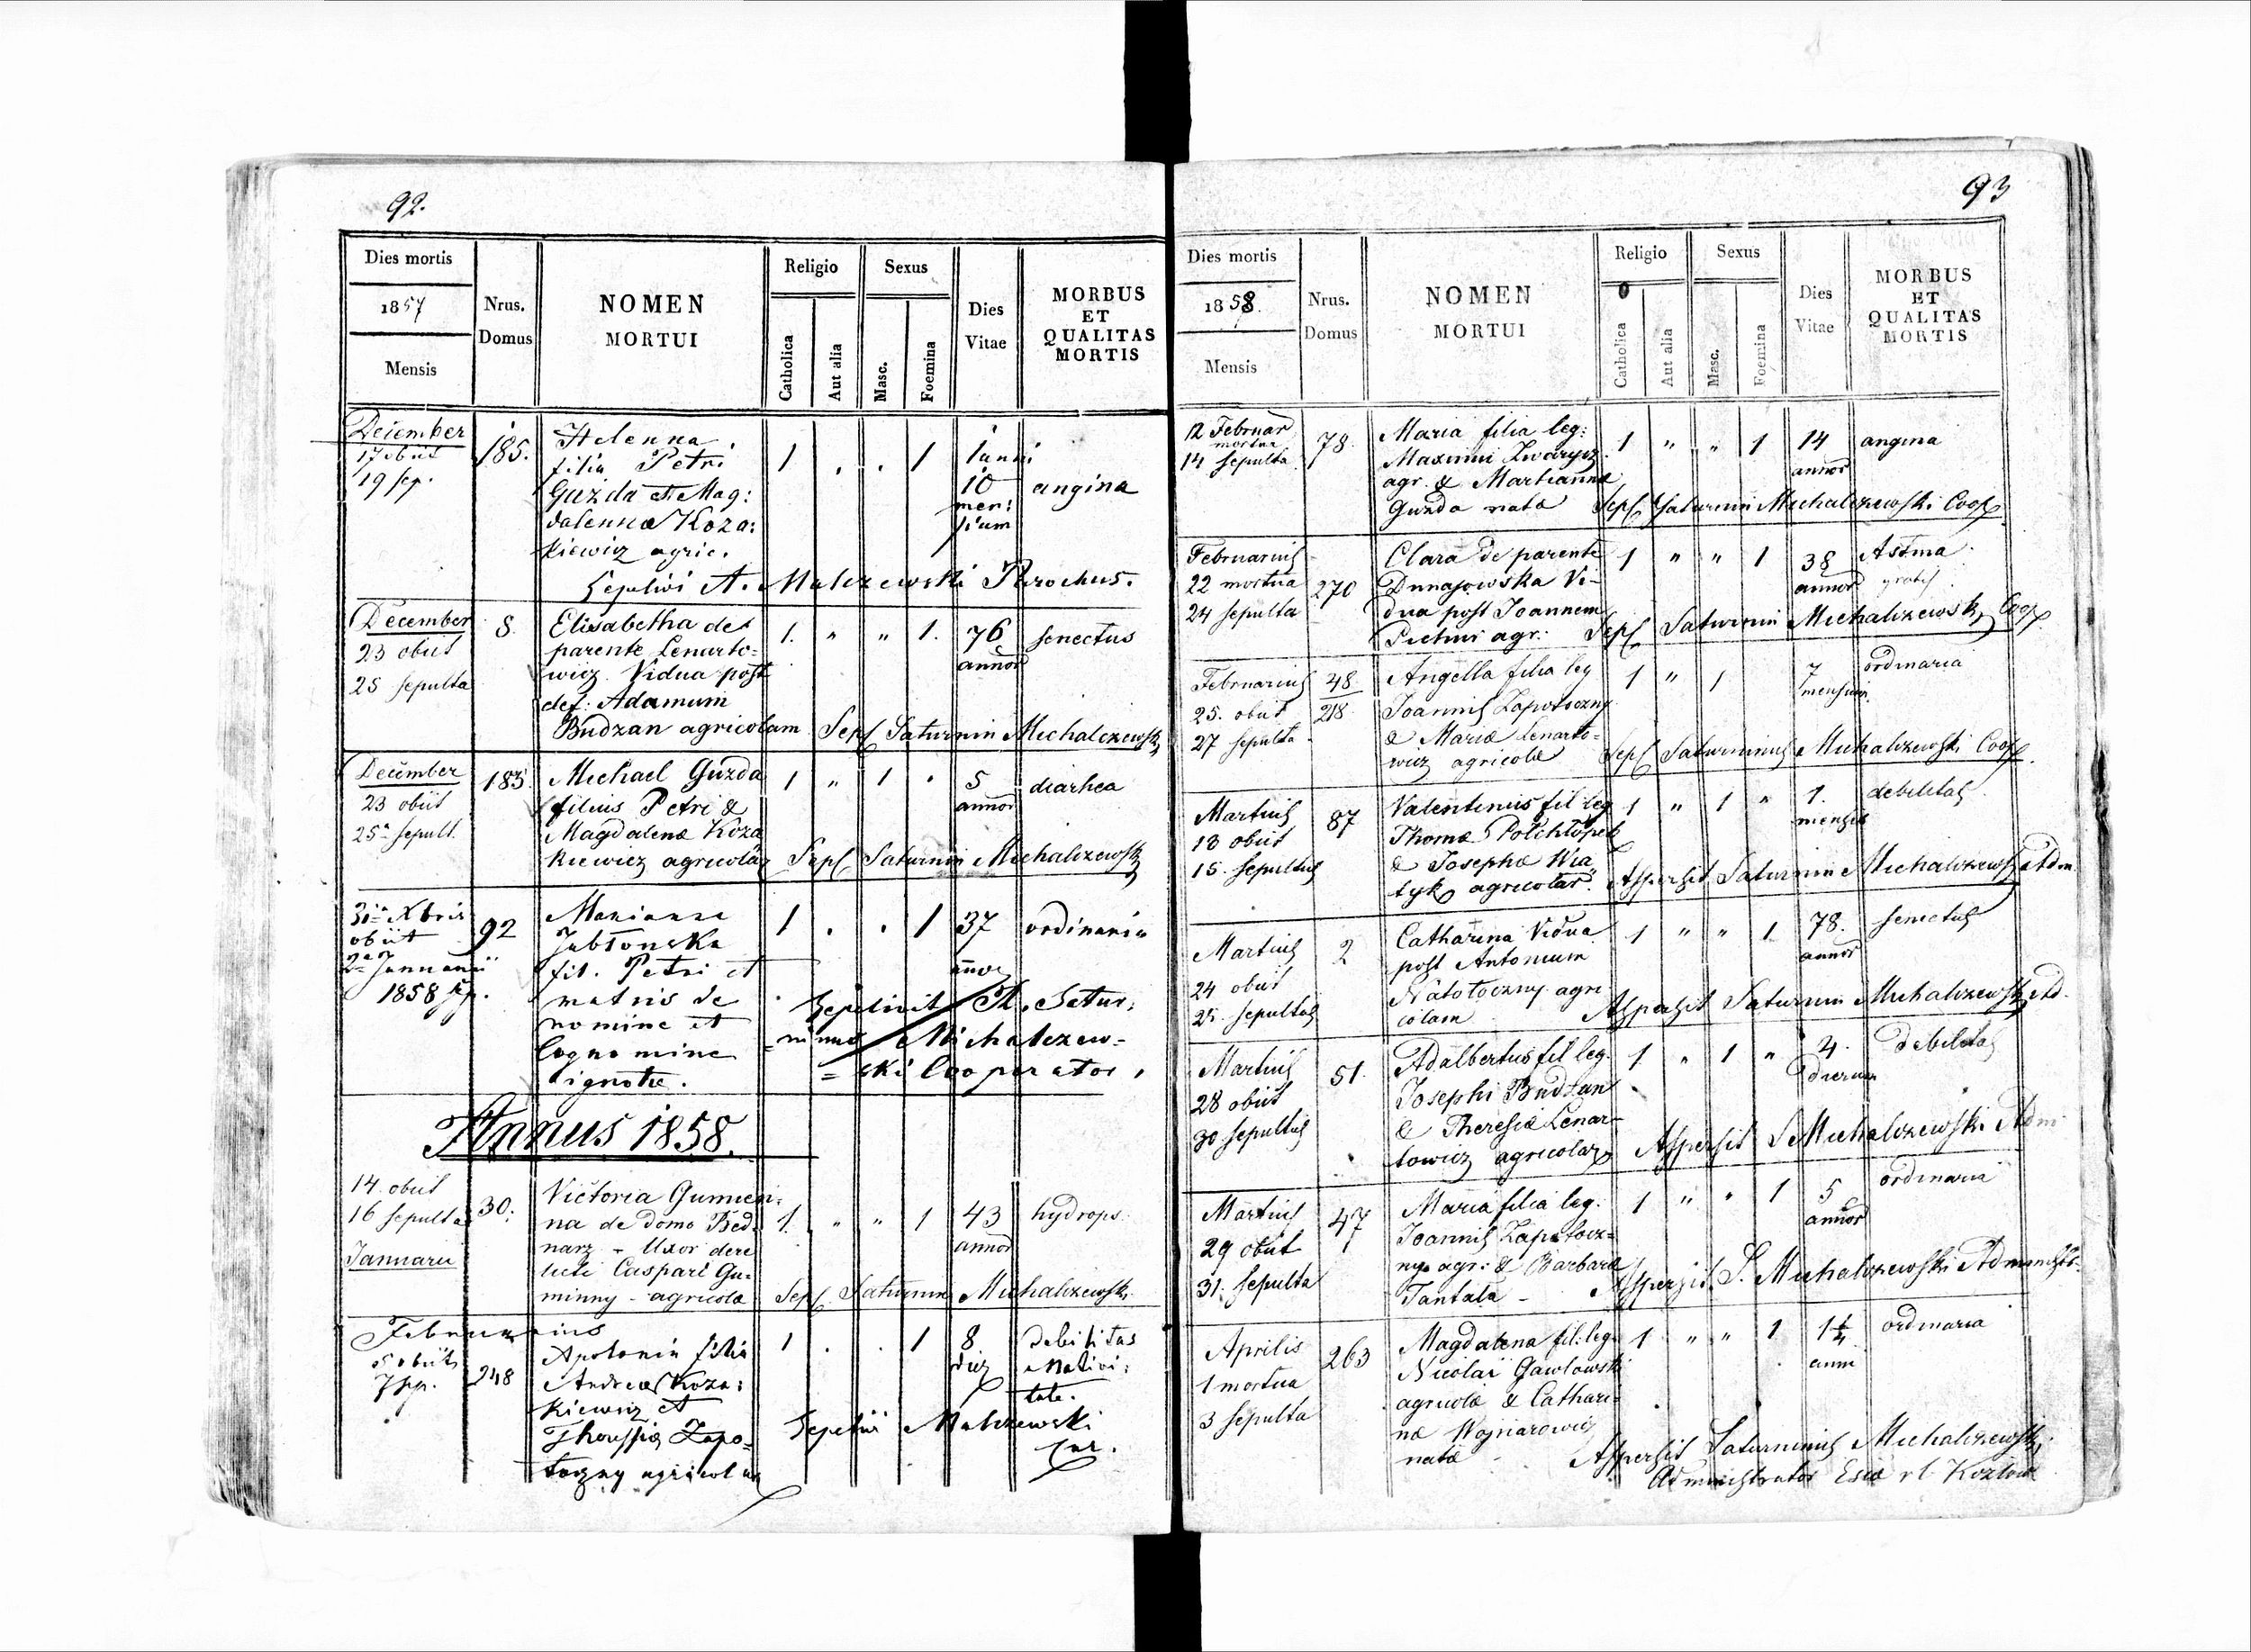 92.
Dies mortis
1857
Mensis
Nrus.
Domus
NOMEN
MORTUI
Religio
Catholica
Aut alia
Sexus
Masc.
Foemina
Dies
Vitae
MORBUS
ET
QUALITAS
MORTIS
December
17 obiit
19 sep.
185.
Helenna
filia Petri
Guzda et Mag:
dalennæ Koza:
kiewicz agric.
1 . . 1
1 anni
10
men:
sium
angina
Sepelivi A. Malczewski Parochus.
December
23 obiit
25 sepulta
8
Elisabetha de
parente Lenarto=
wicz Vidua post
def: Adamum
Budzan agricolam
1. " " 1.
76
annor
senectus
Sep Saturnin Michalczewski
December
23 obiit
25 sepult.
185
Michael Guzda
filius Petri &
Magdalenæ Koza
kiewicz agricolar
1 " 1 .
5
annor
diarhea
Sep Saturnin Michalczewski
31 Xbris
obiit
2 Januarii
1858 sep.
92
Marianna
Jabłonska
fil. Petri et
matris de
nomine et
cognomine
ignotæ.
1 . . 1
37
annor
ordinaria
Sepelivit Satur:
=ninus Michalczew-
=ski Cooperator.
Annus 1858.
14 obiit
16 sepulta
Januarii
30.
Victoria Gumien:
na de domo Bed:
narz - Uxor dere
licti Caspari Gu-
minny - agricolæ
1. " " 1
43
annor
hydrops.
Sep Saturnin Michalczewski
Februarius
5 obiit
7 sep.
248
Apolonia filia
Andreæ Koza:
kiewicz et
Zapo-
toczny agricolar
1 . . 1
8
debilitas
a nativi:
tate.
Sepelivi Malczewski
93
Dies mortis
1858.
Mensis
Nrus.
Domus
NOMEN
MORTUI
Religio
Catholica
Aut alia
Sexus
Masc.
Foemina
Dies
Vitae
MORBUS
ET
QUALITAS
MORTIS
12 Februar
mortua
14 sepulta
78
Maria filia leg:
Maximi Zwarycz
agr. & Martianna
Guzda nata
1 " " 1
14
annor
angina
Sep Saturnin Michalczewski Coop
Februarius
22 mortua
24 sepulta
270
Clara de parente
Dunajowska Vi-
dua post Joannem
agr:
1 " " 1
38
annor
Astma
Sep Saturnin Michalczewski Coop
Februarius
25. obiit
27 sepulta
48
218
Angella filia leg
Joannis Zapotoczny
& Mariæ Lenarto=
wicz agricolæ
1 " 1
7
mensium
ordinaria
Sep Saturninus Michalczewski Coop
Martius
13 obiit
15. sepultus
87
Valentinus fil leg
Thomæ Półchłopek
& Josephæ Wia
tyk agricolar
1 " 1 "
1.
mensis
debilitas
Aspersit Saturnin Michalczewski Adm
Martius
24 obiit
sepultus
2
Catharina Vidua
post Antonium
agri
colam
1 " " 1
78.
annor
senectus
Aspersit Saturnin Michalczewski Ad.
Martius
28 obiit
30 sepultus
51.
Adalbertus fil leg.
Josephi Budzan
& Theresiæ Lenar-
towicz agricolar
1 " 1 "
4.
dierum
debilitas
Aspersit S Michalczewski Adm
Martius
29 obiit
31. sepulta
47
Maria filia leg.
Joannis Zapotocz=
ny agr: & Barbara
Tantała -
1 " " 1
5
annor
ordinaria
Aspersit S. Michalczewski Administr.
Aprilis
1 mortua
3 sepulta
263
Magdalena fil: leg.
Nicolai Gawłowski
agricolæ & Cathari-
næ Wojnarowicz
nata
1 " " 1
1 1/4
anni
ordinaria
Aspersit Saturninus Michalczewski
Administrator r l Kozłow